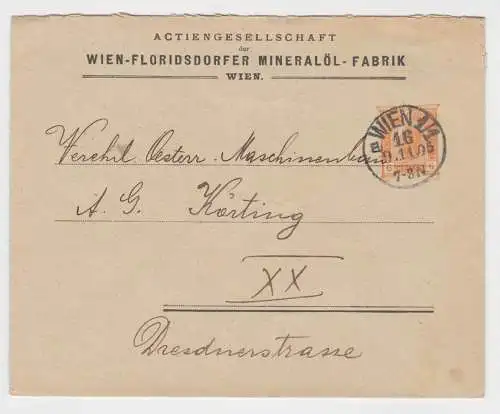 ACTIENGESELLSCHAFT
der
WIEN-FLORIDSDORFER MINERALÖL-FABRIK
WIEN.
WIEN 1/1
16
11.05
7-8N
6 6
Verehrl. Oesterr. Maschinenbau
A. G. Körting
XX
Dresdnerstrasse